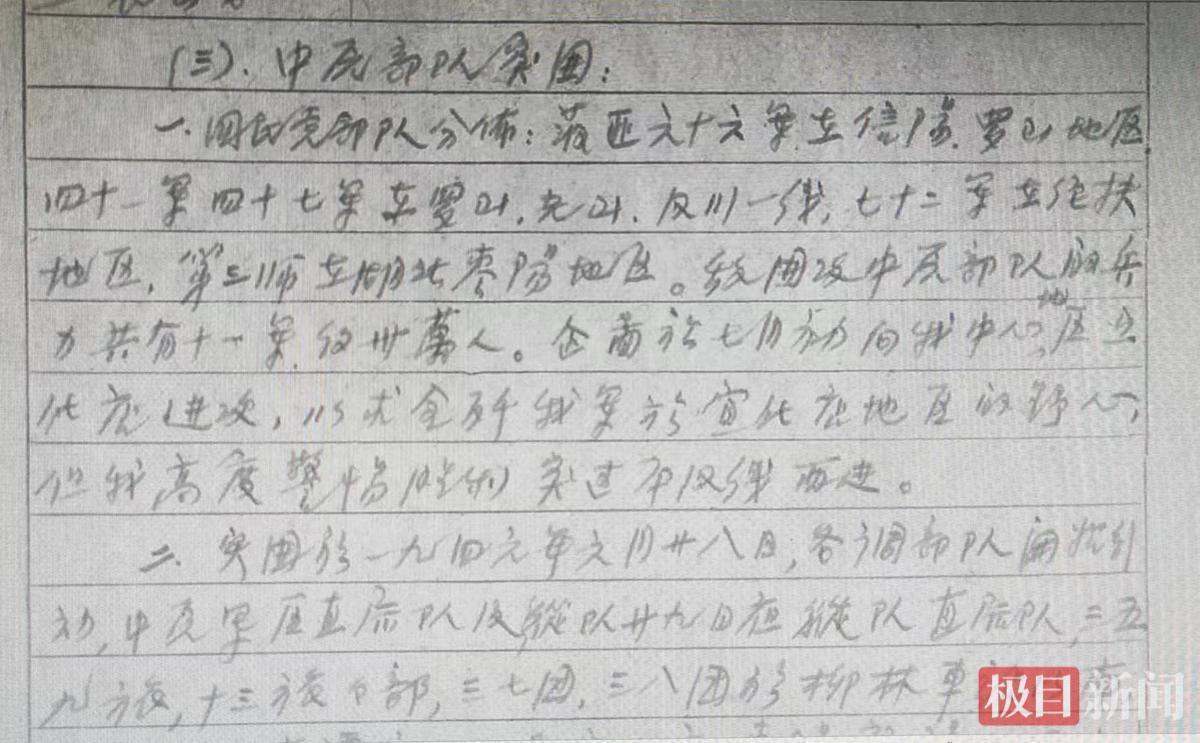 (三)．中原部队突围：
一．国民党部队分佈：蒋匪六十六军在信陽．罗山地区
四十一军四十七军在罗山．光山．及川一线，七十二军在经扶
地区，第三师在湖北枣陽地区。线围攻中原部队的兵
力共有十一军约卅萬人。企啚於七月初向我中心地区宣
化店进攻，以求全歼我军於宣化店地区的野心，
但我高度警惕胜利突过平汉线西进。
二．突围於一九四六年六月廿八日，各调部队闻始行
动，中原军区直属队及纵队廿九日夜纵队直属队，三五
九旅，十三旅旅部，三七团，三八团於柳林車
极目新闻